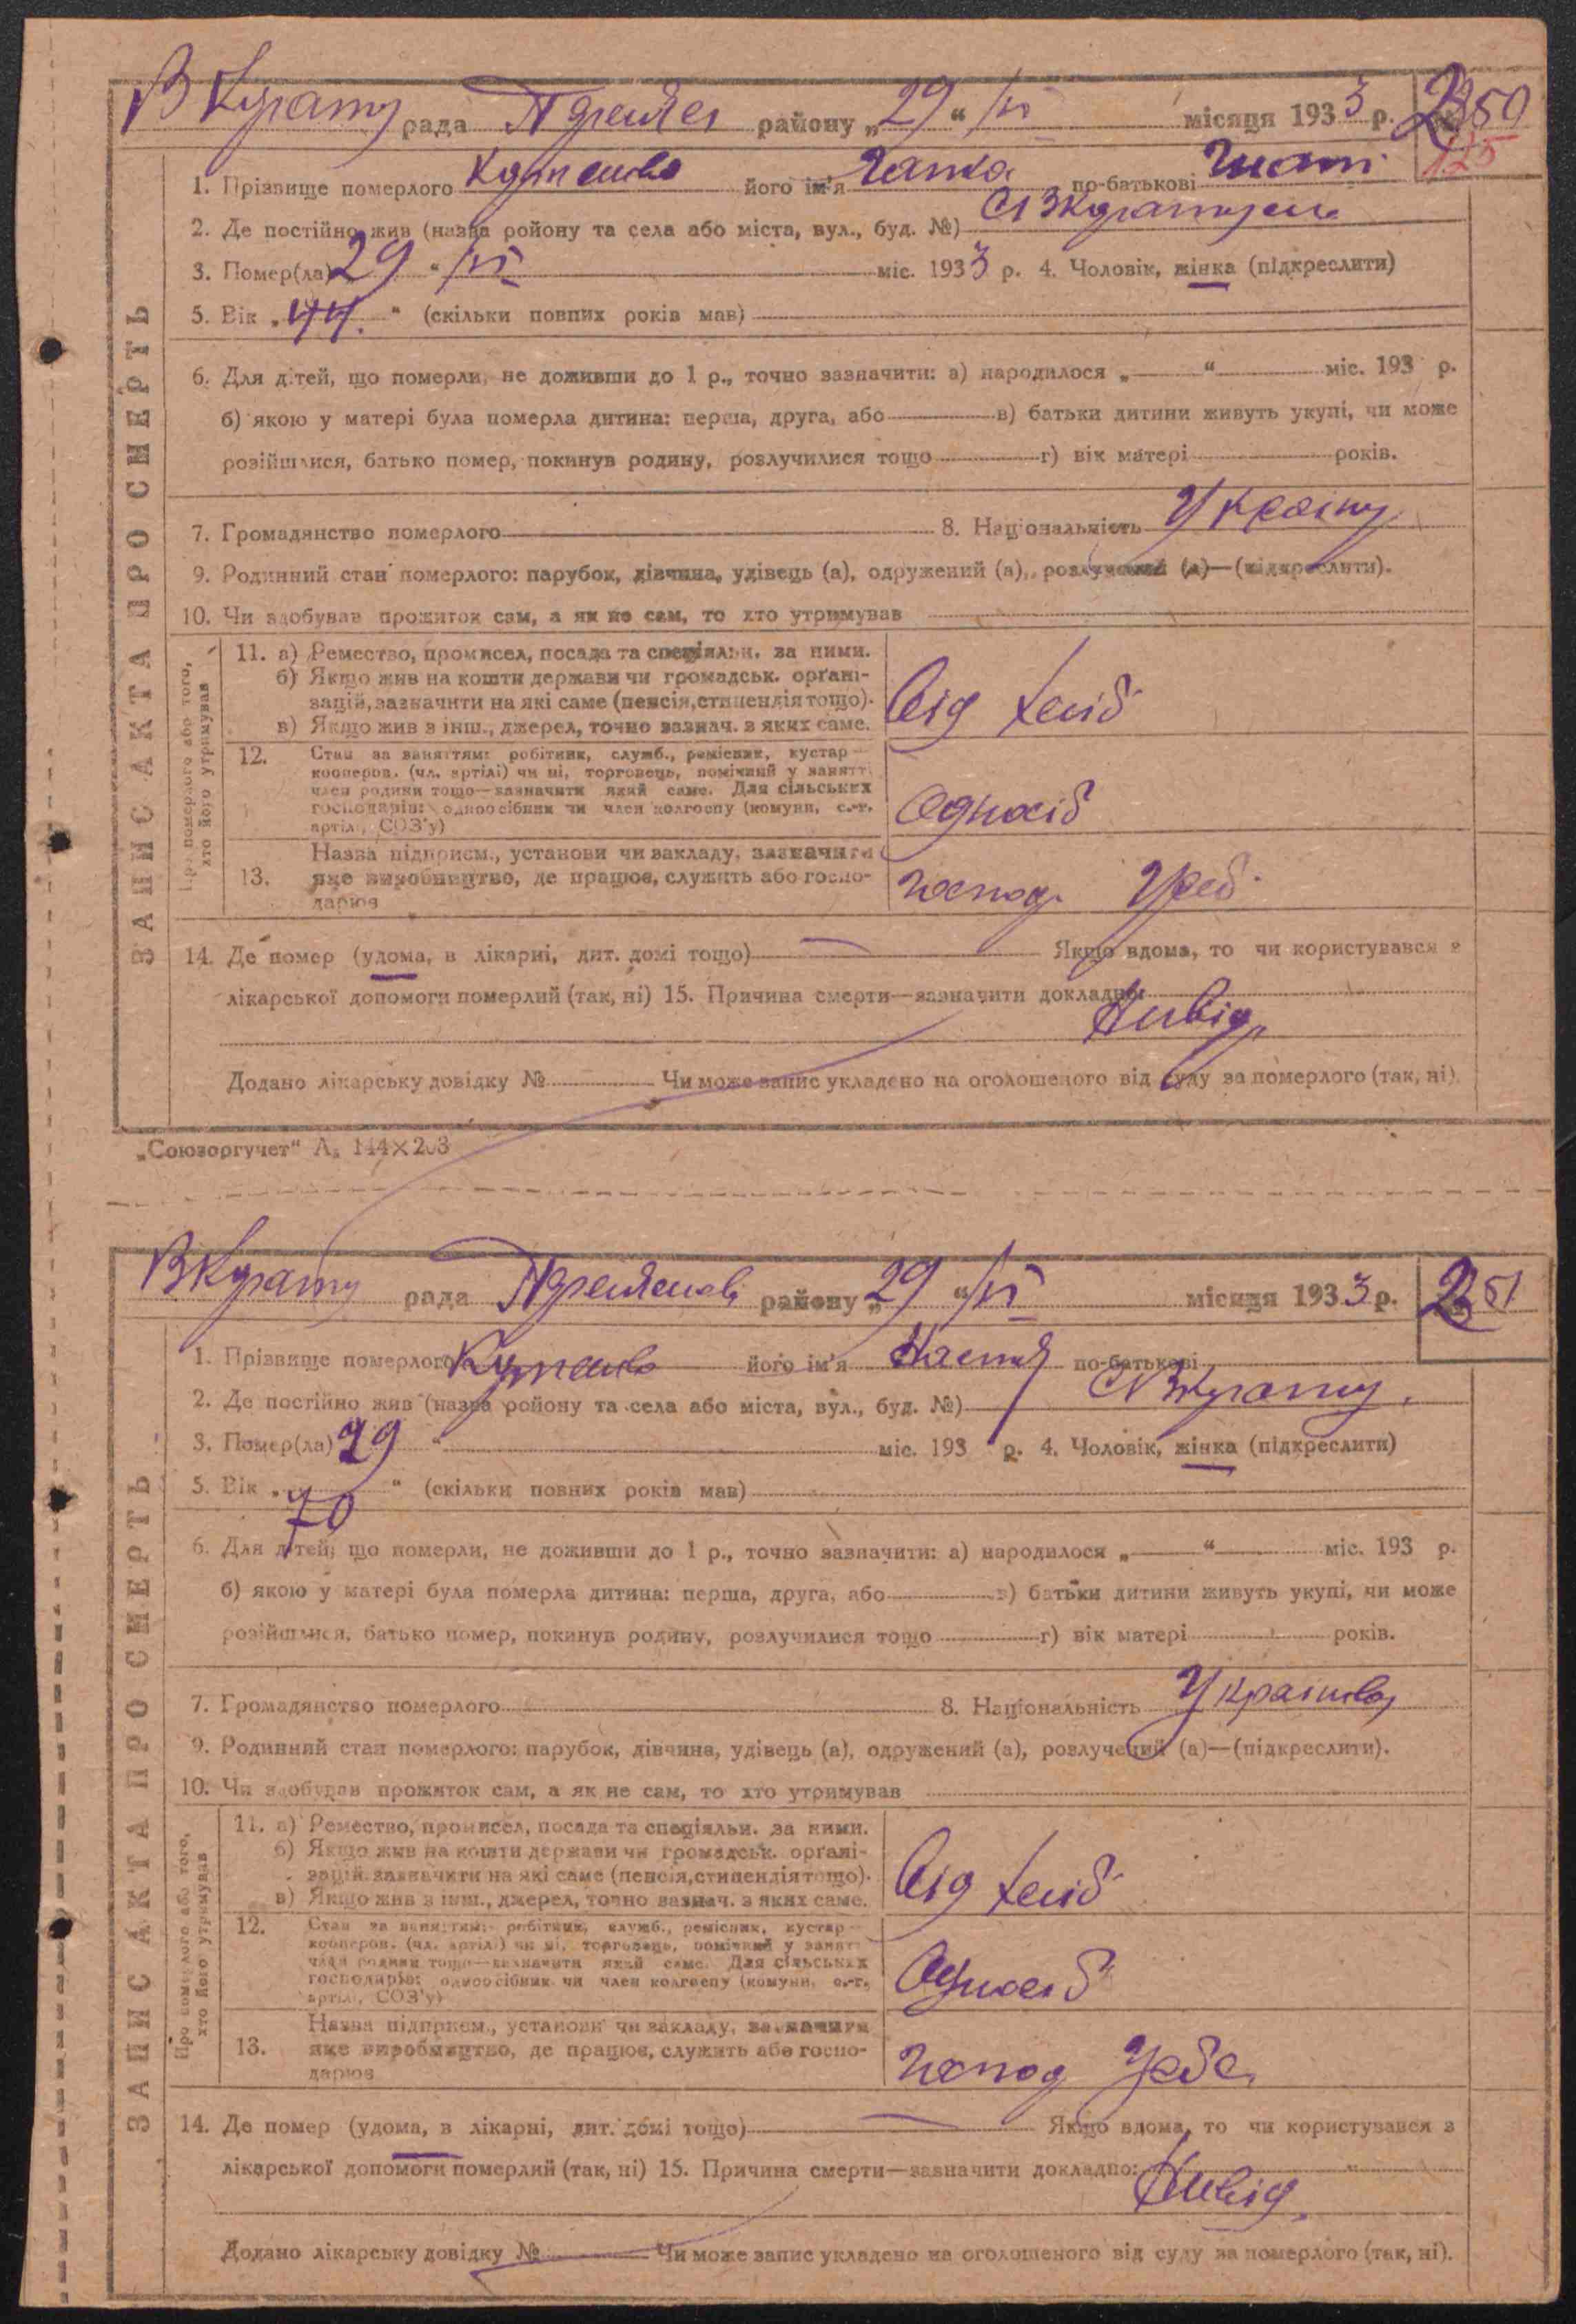 рада района „29“ /VI місяця 1933 р. 250
125
1. Прізвище померлого його ім'я по-батькові
2. Де постійно жив (назва ройону та села або міста, вул., буд. №)
3. Помер(ла) 29 “ /VI міс. 1933 р. 4. Чоловік, жінка (підкреслити)
5. Вік „44.“ (скільки повних років мав)
6. Для дітей, що померли, не доживши до 1 р., точно зазначити: а) народилося „ “ міс. 193 р.
б) якою у матері була померла дитина: перша, друга, або в) батьки дитини живуть укупі, чи може
розійшлися, батько помер, покинув родину, розлучилися тощо г) вік матері років.
7. Громадянство померлого 8. Національність Україн
9. Родинний стан померлого: парубок, дівчина, удівець (а), одружений (а), розлучений (а)—(підкреслити).
10. Чи здобував прожиток сам, а як не сам, то хто утримував
ЗАПИС АКТА ПРО СМЕРТЬ
Про померлого або того,
хто його утримував
11. а) Ремество, промисел, посада та спеціяльн. за ними.
б) Якщо жив на кошти держави чи громадськ. органі-
зацій, зазначити на які саме (пенсія, стипендія тощо).
в) Якщо жив з інш., джерел, точно зазнач. з яких саме.
від хліб
12. Стан за заняттям: робітник, служб., ремісник, кустар—
кооперов. (чл. артілі) чи ні, торговець, помічний у занятті
член родини тощо—зазначити який саме. Для сільських
господарів: одноосібник чи член колгоспу (комуни, с.-г.
артілі, СОЗ'у)
Одноосіб
13. Назва підприєм., установи чи закладу, зазначити
яке виробництво, де працює, служить або госпо-
дарює
господ.
14. Де помер (удома, в лікарні, дит. домі тощо) Якщо вдома, то чи користувався з
лікарської допомоги померлий (так, ні) 15. Причина смерти—зазначити докладно:
Додано лікарську довідку № Чи може запис укладено на оголошеного від суду за померлого (так, ні).
„Союзоргучет“ А₅ 144×203
рада району „29“ /VI місяця 1933 р. 251
1. Прізвище померлого його ім'я Настя по-батькові
2. Де постійно жив (назва ройону та села або міста, вул., буд. №)
3. Помер(ла) 29 “ міс. 193 р. 4. Чоловік, жінка (підкреслити)
5. Вік „70“ (скільки повних років мав)
6. Для дітей, що померли, не доживши до 1 р., точно зазначити: а) народилося „ “ міс. 193 р.
б) якою у матері була померла дитина: перша, друга, або в) батьки дитини живуть укупі, чи може
розійшлися, батько помер, покинув родину, розлучилися тощо г) вік матері років.
7. Громадянство померлого 8. Національність
9. Родинний стан померлого: парубок, дівчина, удівець (а), одружений (а), розлучений (а)—(підкреслити).
10. Чи здобував прожиток сам, а як не сам, то хто утримував
ЗАПИС АКТА ПРО СМЕРТЬ
Про померлого або того,
хто його утримував
11. а) Ремество, промисел, посада та спеціяльн. за ними.
б) Якщо жив на кошти держави чи громадськ. органі-
зацій зазначити на які саме (пенсія, стипендія тощо).
в) Якщо жив з інш., джерел, точно зазнач. з яких саме.
від хліб
12. Стан за заняттям: робітник, служб., ремісник, кустар—
кооперов. (чл. артілі) чи ні, торговець, помічний у занятті
член родини тощо—зазначити який саме. Для сільських
господарів: одноосібник чи член колгоспу (комуни, с.-г.
артілі, СОЗ'у)
Одноосіб
13. Назва підприєм., установи чи закладу, зазначити
яке виробництво, де працює, служить або госпо-
дарює
господ
14. Де помер (удома, в лікарні, дит. домі тощо) Якщо вдома, то чи користувався з
лікарської допомоги померлий (так, ні) 15. Причина смерти—зазначити докладно:
Додано лікарську довідку № Чи може запис укладено на оголошеного від суду за померлого (так, ні).